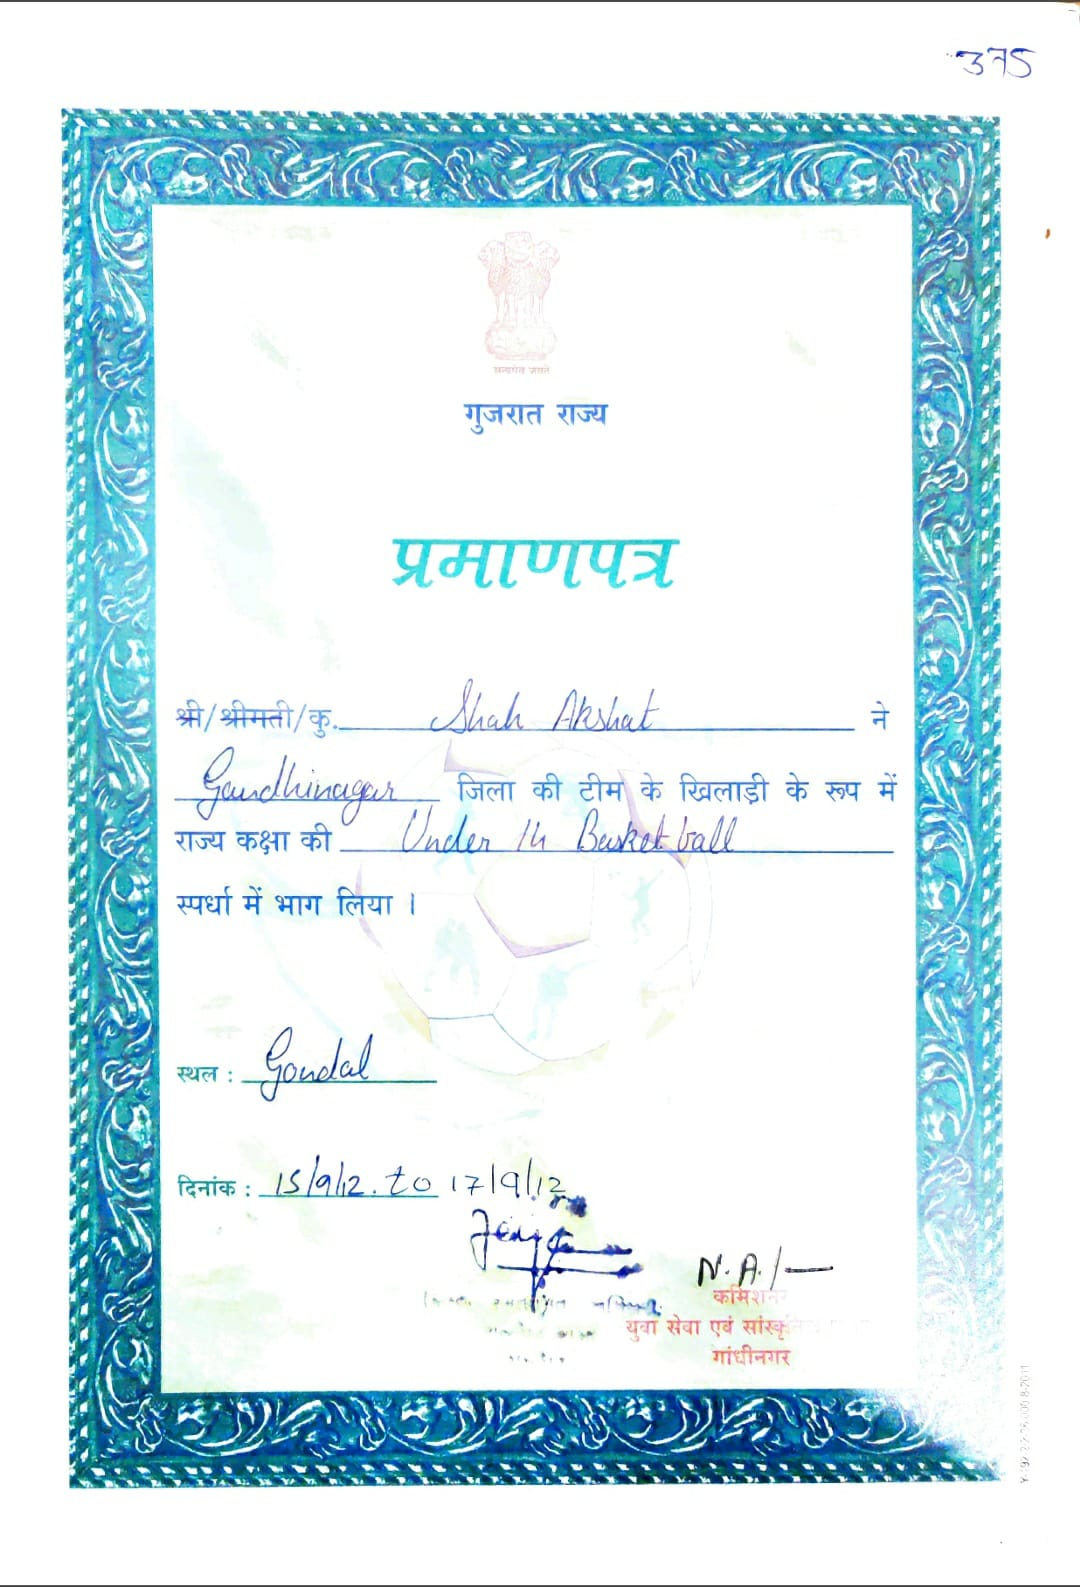 375
सत्यमेव जयते
गुजरात राज्य
प्रमाणपत्र
श्री/श्रीमती/कु. Shah Akshat ने
Gandhinagar जिला की टीम के खिलाड़ी के रूप में
राज्य कक्षा की Under 14 Basket ball
स्पर्धा में भाग लिया ।
स्थल : Gondal
दिनांक : 15/9/12. to 17/9/12
N.A./—
कमिशनर
युवा सेवा एवं
गांधीनगर